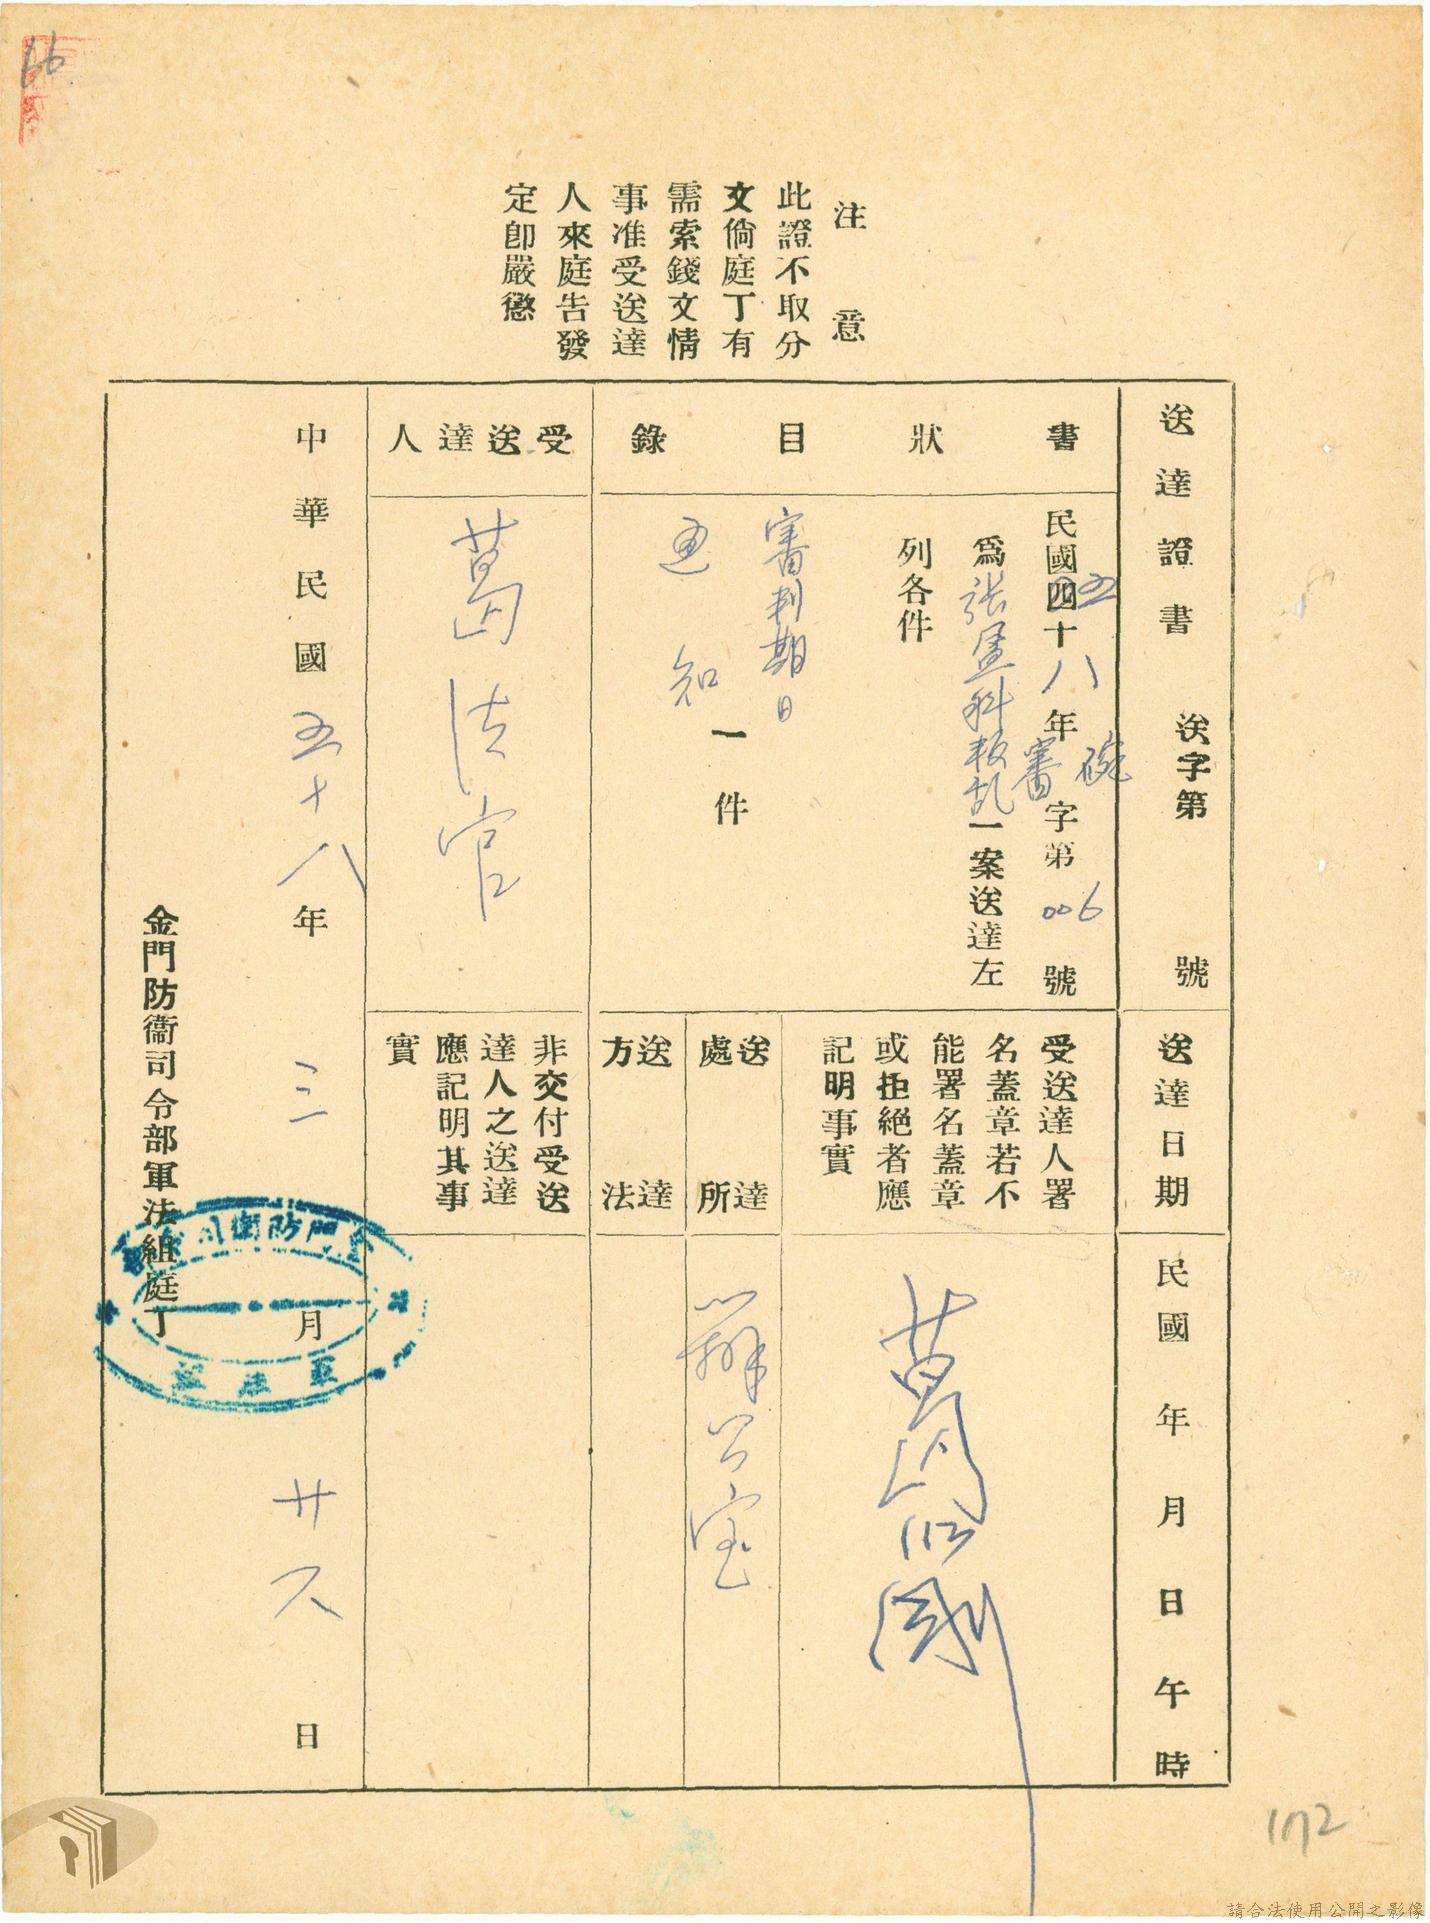 66
注意
此證不取分
文倘庭丁有
需索錢文情
事准受送達
人來庭告發
定即嚴懲
送達證書 送字第 號
送達日期 民國 年 月 日 午 時
書狀目錄
民國五十八年 審字第006號
為張盈科叛乱一案送達左
列各件
審判期日
通知
一件
受送達人署
名蓋章若不
能署名蓋章
或拒絕者應
記明事實
送達
處所
辦公室
送達
方法
受送達人
葛法官
非交付受送
達人之送達
應記明其事
實
中華民國五十八年三月廿六日
金門防衛司令部軍法組庭丁
172
請合法使用公開之影像